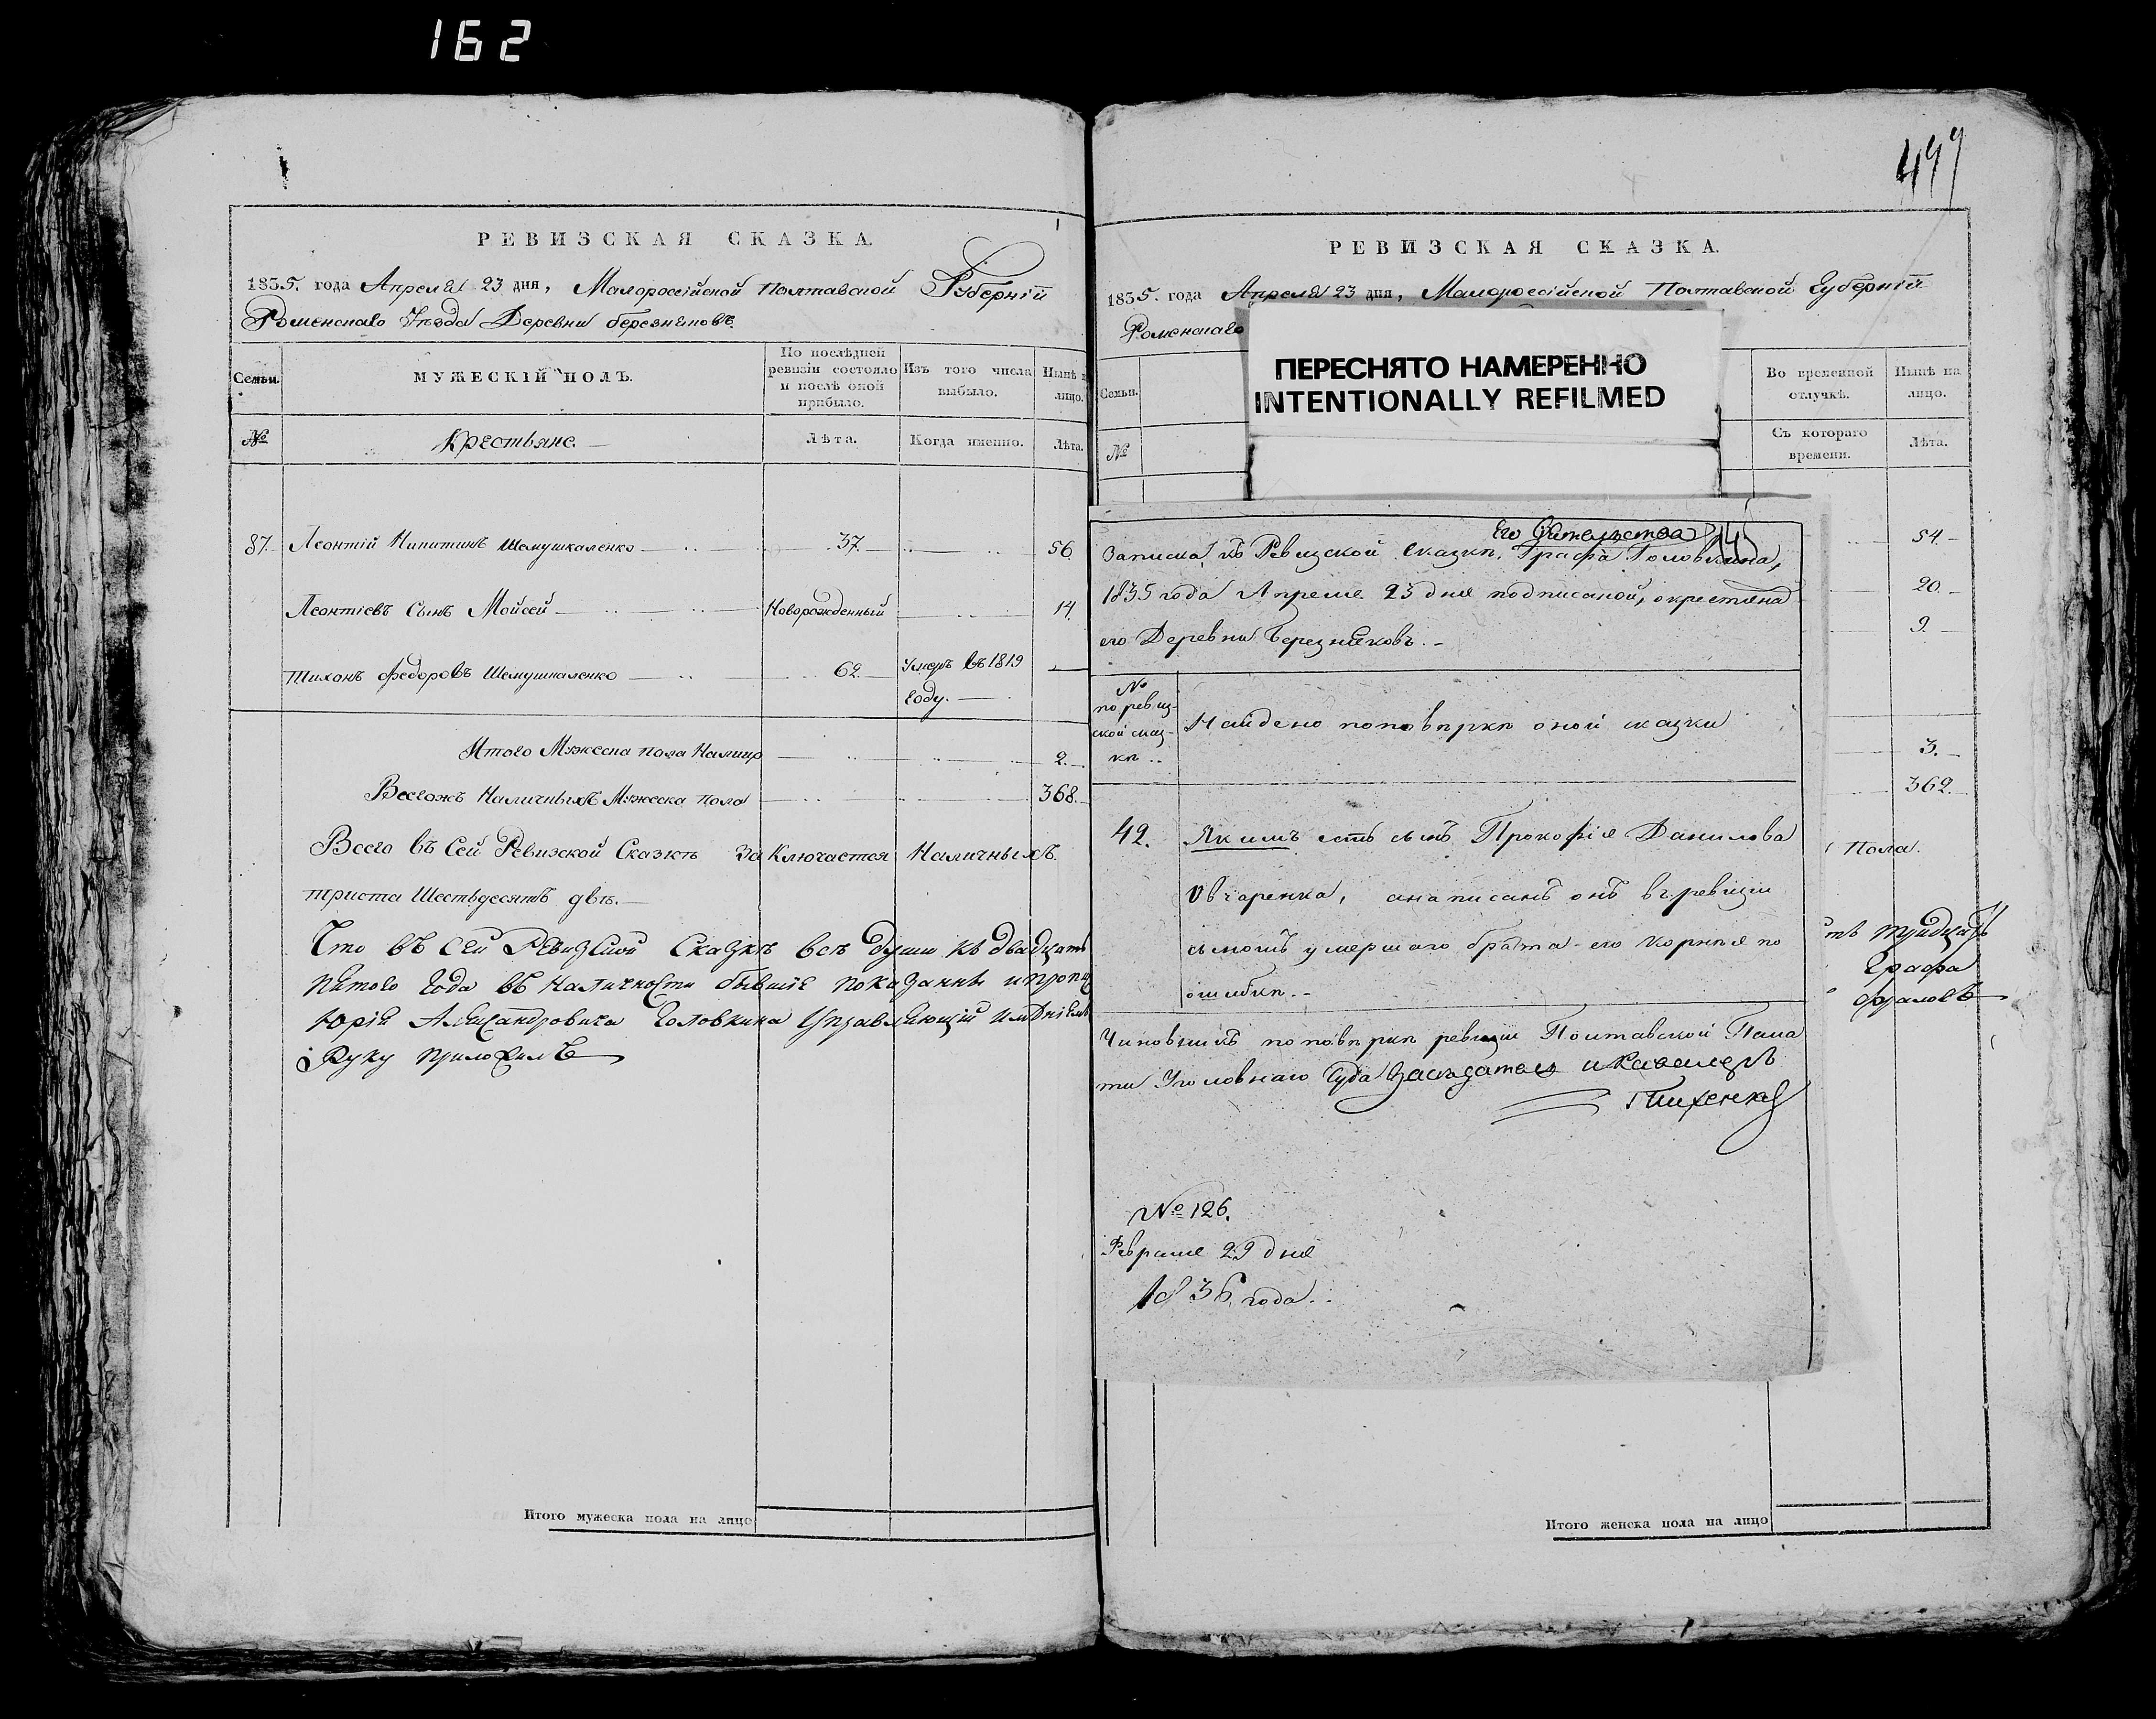 162
РЕВИЗСКАЯ СКАЗКА.
1835. года Апреля 23 дня, Малороссійской Полтавской Губерній
Роменскаго Уѣзда Деревни березняковъ.
Семьи.
МУЖЕСКІЙ ПОЛЪ.
По послѣдней ревизіи состояло и послѣ оной прибыло.
Изъ того числа выбыло.
Нынѣ на лицо.
№
Крестьяне.
Лѣта.
Когда именно.
Лѣта.
87. Леонтій Никитинъ Шемушкаленко 37. 56
Леонтіевъ Сынъ Мойсей Новорожденный 14.
Тихонъ Федоровъ Шемушкаленко 62. Умеръ въ 1819
году.
Итого Мужеска пола Налицо 2.
Всегожъ Наличныхъ Мужеска пола 368.
Всего въ Сей Ревизской Сказкѣ Заключается Наличныхъ
триста Шестьдесятъ двѣ.
Что въ сей Ревизской Сказкѣ всѣ души къ двадцать
пятого Года въ наличности бывшіе показанны и
Юрія Александровича Головкина Управляющій имѣніемъ
Руку приложилъ
Итого мужеска пола на лицо
499
РЕВИЗСКАЯ СКАЗКА.
1835. года Апреля 23 дня, Малороссійской Полтавской Губерній
Роменскаго
ПЕРЕСНЯТО НАМЕРЕННО
INTENTIONALLY REFILMED
Семьи.
Во временной отлучкѣ.
Нынѣ на лицо.
№
Съ котораго времени.
Лѣта.
54.
20.
9.
3.
362.
Пола.
Графа
Его Сіятельства
Записка, къ Ревизской Сказкѣ, Графа Головкина,
1835 года Апреля 23 дня подписаной, окрестянах
его Деревни Березняковъ.
№ по ревизской сказкѣ
Найдено поповѣркѣ оной сказки
42. Якимъ есть сынъ Прокофія Данилова
Овчаренка, анаписанъ онъ въ ревизіи
сыномъ умершаго брата его Корнѣя по
ошибкѣ.
Чиновникъ поповѣркѣ ревизіи Полтавской Пала
ты Уголовнаго Суда Засѣдатель и Кавалеръ
№ 126.
Февраля 29 дня
1836 года.
Итого женска пола на лицо